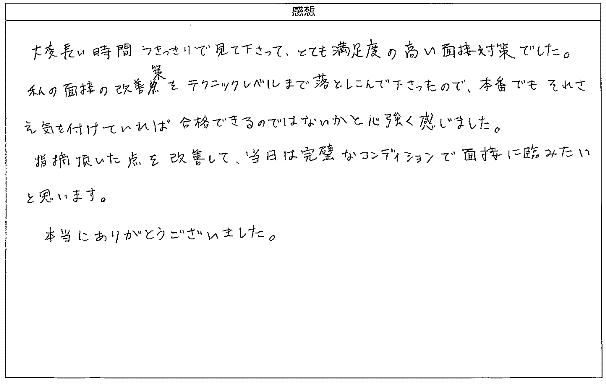 感想
大変長い時間つきっきりで見て下さって、とても満足度の高い面接対策でした。
私の面接の改善策をテクニックレベルまで落としこんで下さったので、本番でもそれさ
え気を付けていれば合格できるのではないかと心強く感じました。
指摘頂いた点を改善して、当日は完璧なコンディションで面接に臨みたい
と思います。
本当にありがとうございました。